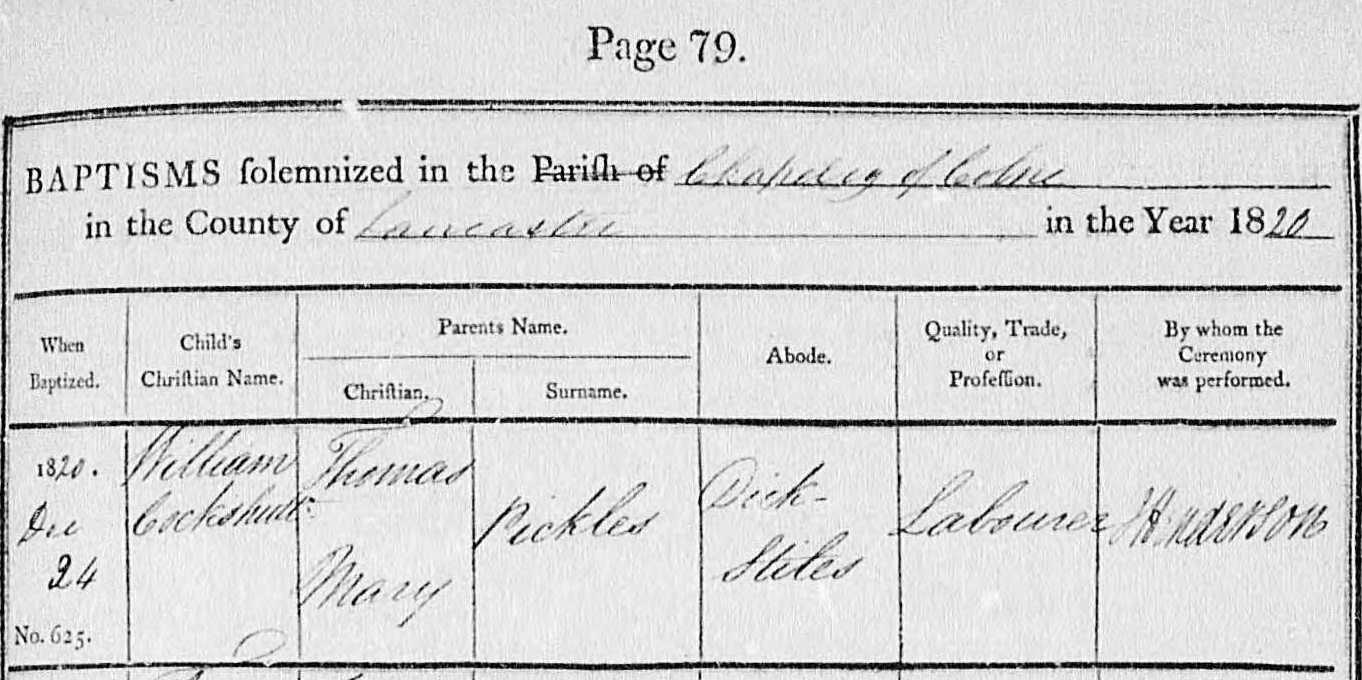 Page 79.
BAPTISMS ſolemnized in the Pariſh of Chapelry of Colne
in the County of Lancaster in the Year 1820
When Baptized.
Child's Chriſtian Name.
Parents Name.
Chriſtian.
Surname.
Abode.
Quality, Trade, or Profeſſion.
By whom the Ceremony was performed.
1820.
Dec
24
No. 625.
William
Cockshutt
Thomas
Mary
Pickles
Dick-
Stiles
Labourer
J Henderson